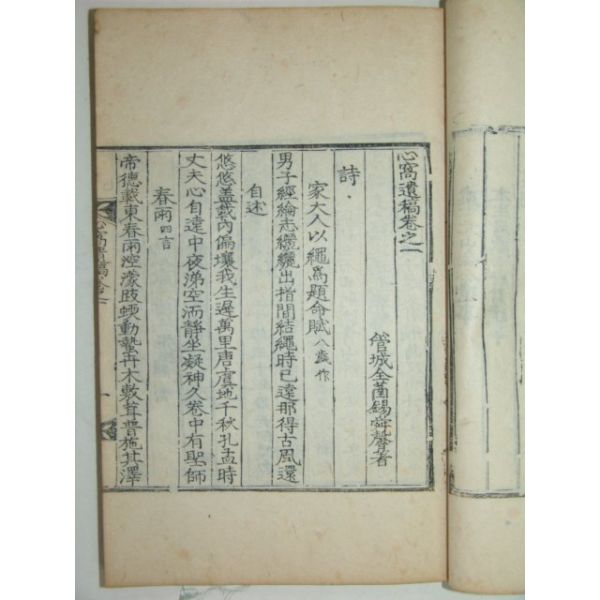 心窩遺稿卷之一
管城全菌錫舜馨著
詩
家大人以繩爲題命賦八歲作
男子經綸志纚纚出指間結繩時已遠那得古風還
自述
悠悠蓋載內偏壤我生遲萬里唐虞地千秋孔孟時
丈夫心自達中夜涕空洏靜坐凝神久卷中有聖師
春雨四言
帝德載東春雨涳濛跂蝡動蟄卉木敷茸普施其澤
心窩遺稿卷之一